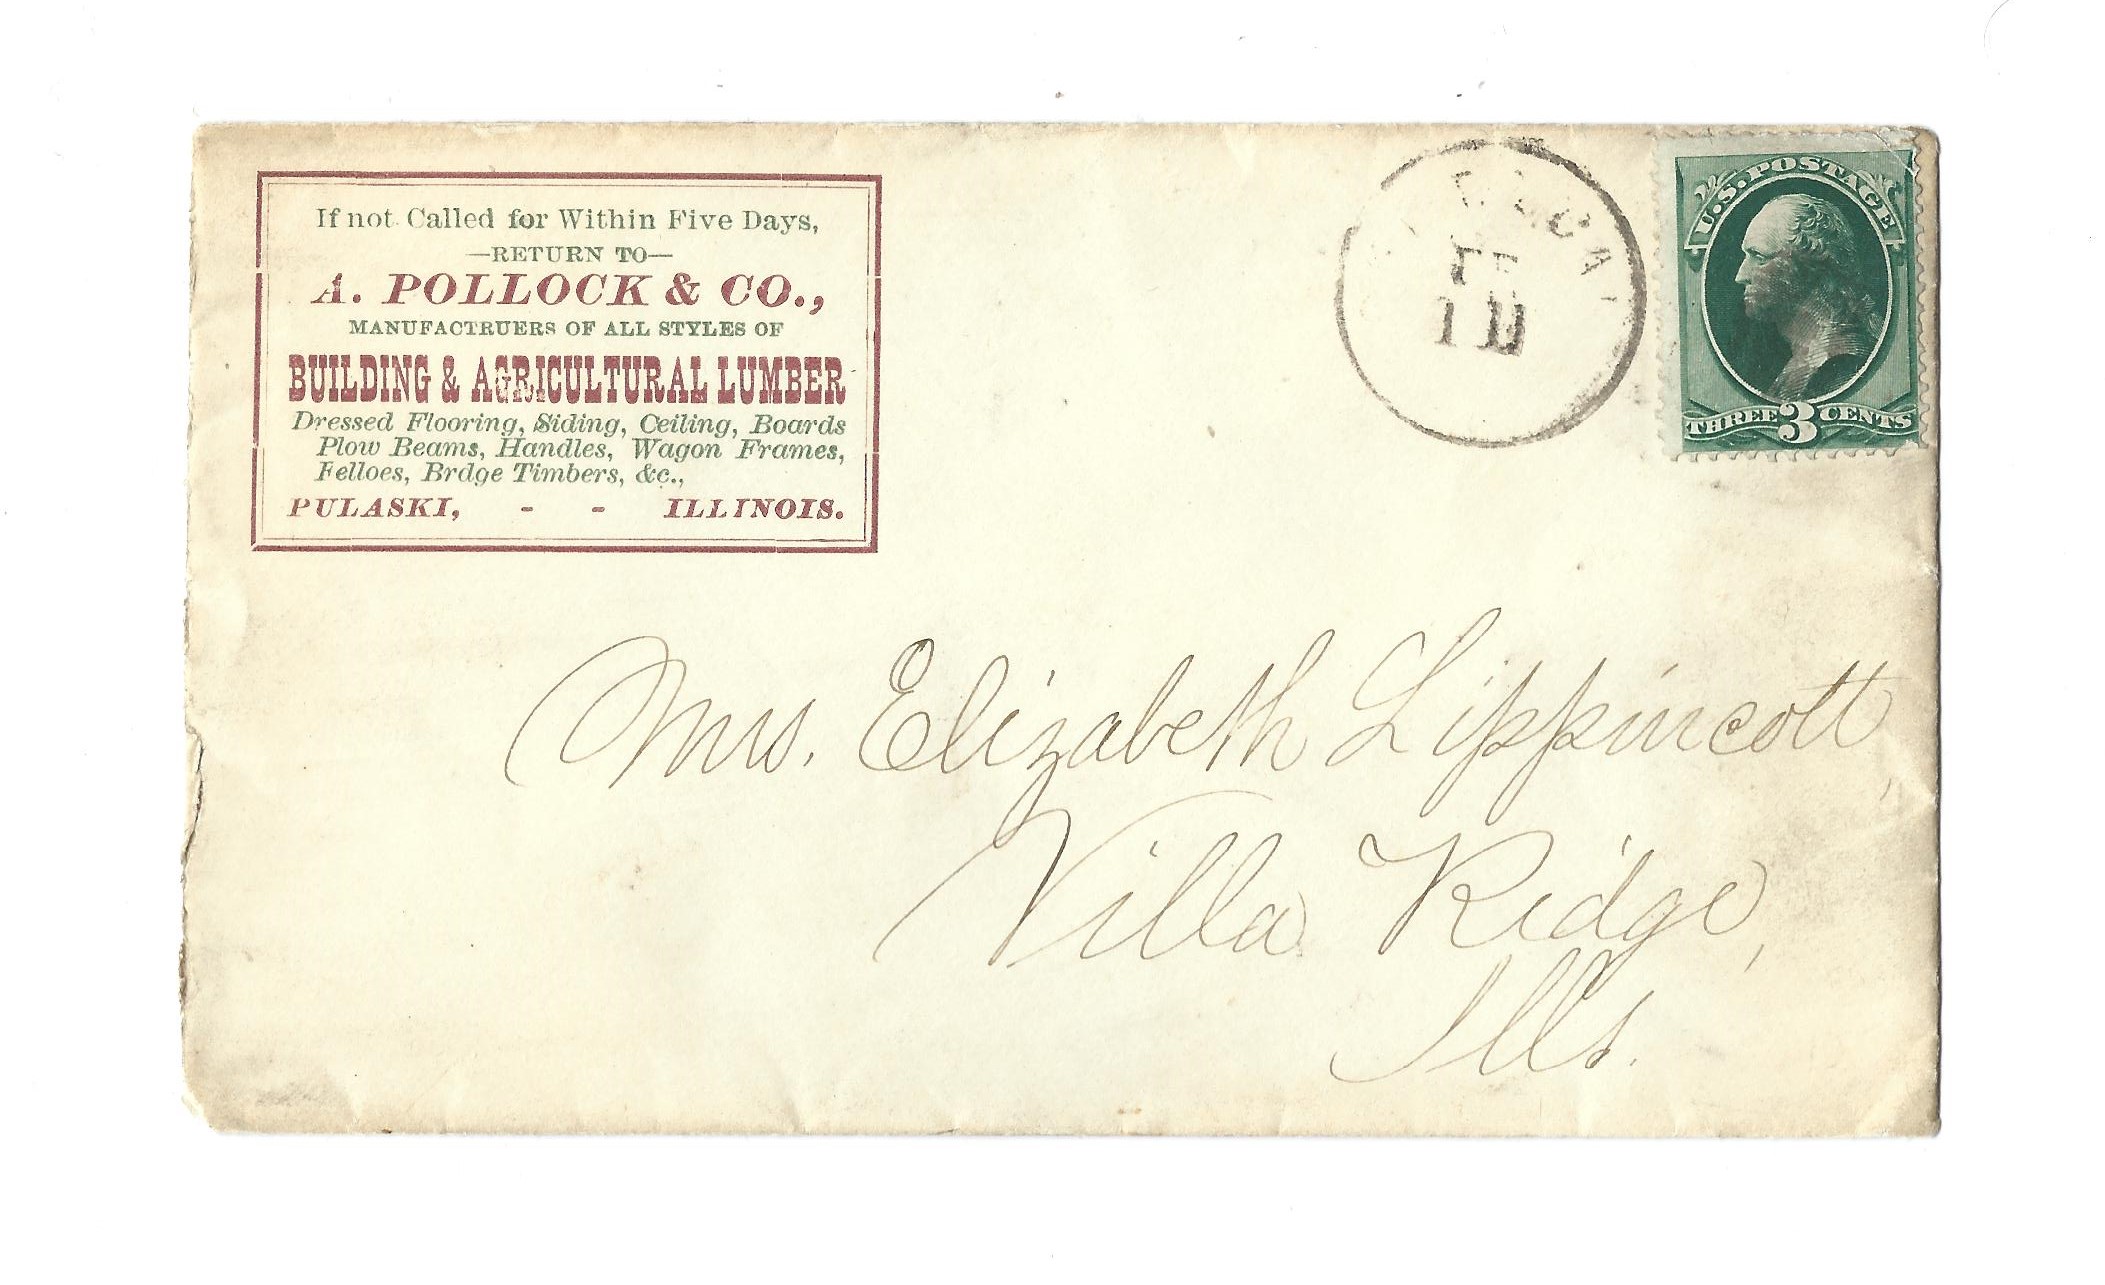 If not Called for Within Five Days,
—RETURN TO—
A. POLLOCK & CO.,
MANUFACTRUERS OF ALL STYLES OF
BUILDING & AGRICULTURAL LUMBER
Dressed Flooring, Siding, Ceiling, Boards
Plow Beams, Handles, Wagon Frames,
Felloes, Brdge Timbers, &c.,
PULASKI, - - ILLINOIS.
U.S. POSTAGE
THREE 3 CENTS
Mrs. Elizabeth Lippincott,
Villa Ridge,
Ills.